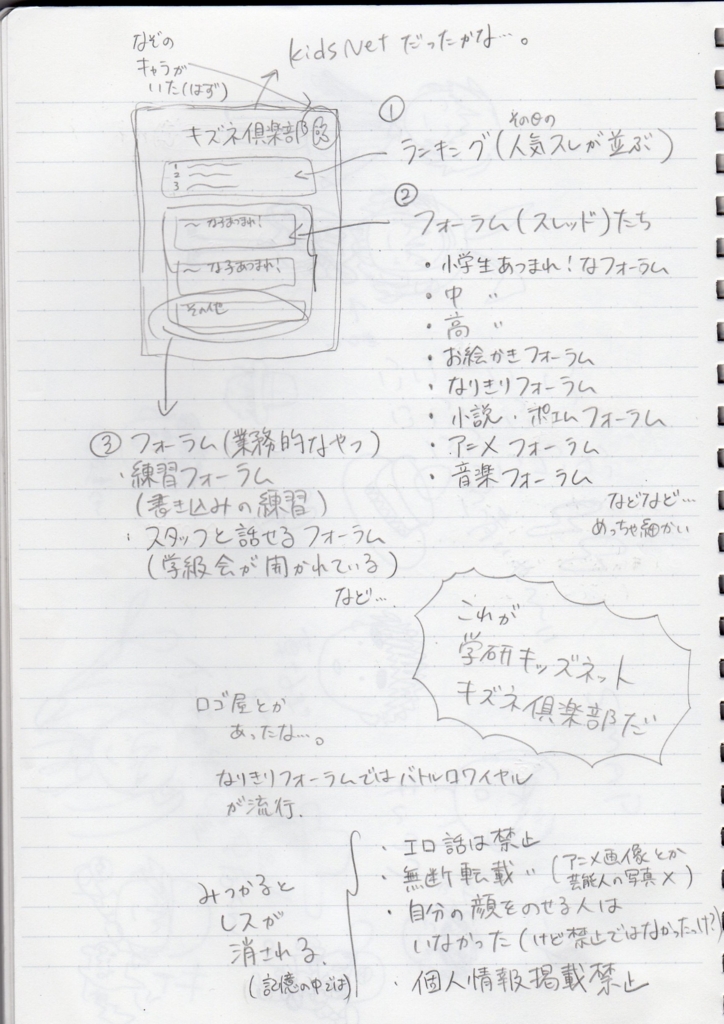 なぞの
キャラが
いた(はず)
kidsNetだったかな…。
キズネ倶楽部
1
2
3
〜な子あつまれ!
〜な子あつまれ!
その他
①
ランキング(その日の人気スレが並ぶ)
②
フォーラム(スレッド)たち
・小学生あつまれ!なフォーラム
・中 〃
・高 〃
・お絵かきフォーラム
・なりきりフォーラム
・小説・ポエムフォーラム
・アニメフォーラム
・音楽フォーラム
などなど…
めっちゃ細かい
③フォーラム(業務的なやつ)
・練習フォーラム
(書き込みの練習)
・スタッフと話せるフォーラム
(学級会が開かれている)
など…
これが
学研キッズネット
キズネ倶楽部だ
ロゴ屋とか
あったな…。
なりきりフォーラムではバトルロワイヤル
が流行.
みつかると
レスが
消される.
(記憶の中では)
・エロ話は禁止
・無断転載〃(アニメ画像とか
芸能人の写真×)
・自分の顔をのせる人は
いなかった(けど禁止ではなかったっけ?)
・個人情報掲載禁止